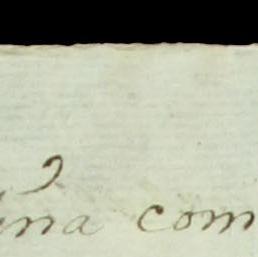 ina com